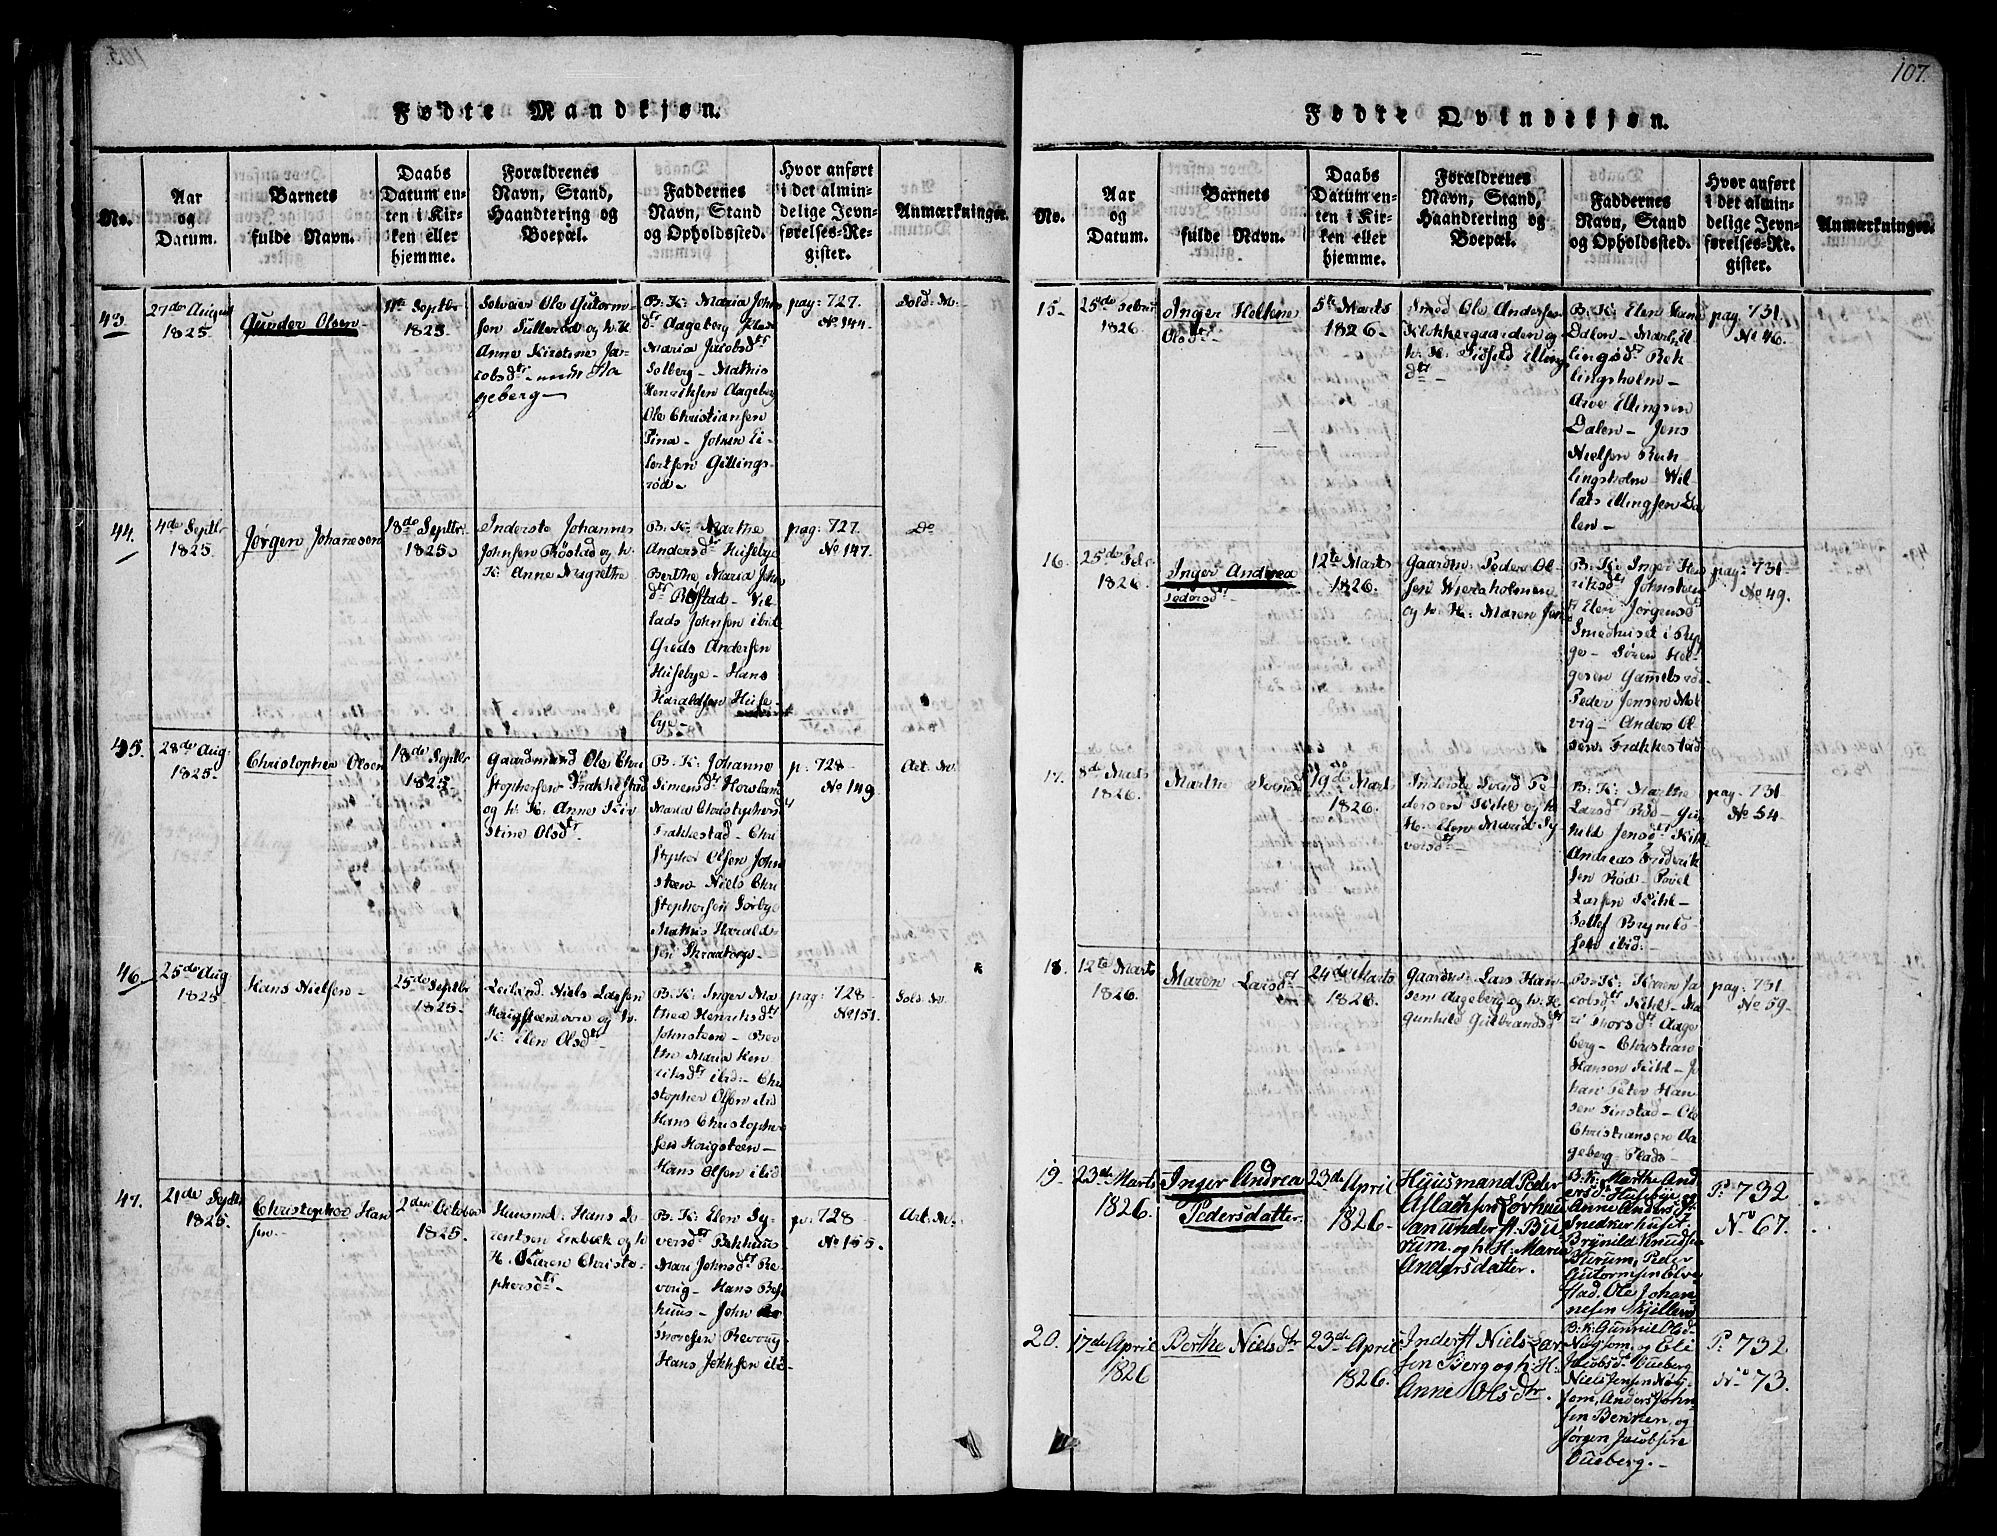 107.
Fødte Mandkjøn.
No.
Aar
og
Datum.
Barnets
fulde Navn.
Daabs
Datum en-
ten i Kir-
ken eller
hjemme.
Forældrenes
Navn, Stand,
Haandtering og
Boepæl.
Faddernes
Navn, Stand
og Opholdssted.
Hvor anført
i det almin-
delige Jevn-
førelses-Re-
gister.
Anmærkninger.
43.
27de August
1825.
Gunder Olsen
11te Septbr
1825.
Ole Gutorm-
sen
og h.
Anne Kirstine Ja-
cobsdtr
geberg
B: K: Maria Johns
dtr Aageberg
Maria Jacobsdtr
Solberg - Mathis
Henriksen Aageberg
Ole Christiansen
rød -
pag: 727.
No 144.
Sold: N.
44.
4de Septbr
1825.
Jørgen Johanesen
18de Septbr
1825.
Inderste Johannes
Johnsen Røstad og h.
K: Anne Margrethe
B: K: Marthe
Andersdtr Husebye
Berthe Maria John
dtr Røstad - Vil-
lads Johnsen ibid
Andersen
Husebye - Hans
Haraldsen Huse-
bye -
pag: 727.
No 147.
Do
45.
28de Aug:
1825.
Christopher Olsen
18de Septbr
1825
Gaardmand Ole Chri
stophersen Frakkestad
og h. K: Anne Kir
stine Olsdtr
B: K: Johanne
Simensdtr
Maria Christophersd
Frakkestad - Chri
stopher Olsen John
steen Niels Chri
stophersen Sørbye
Mathis Harald-
sen
p: 728-
No 149.
Act. N.
46.
25de Aug
1825
Hans Nielsen
25de Septbr
1825.
Niels Larsen
og h.
K: Elen Olsdtr
B: K: Inger Ma-
thea Henriksdtr
Johnsteen - Ber
the Maria Hen
riksdtr ibid: - Chri
stopher Olsen ibid
Hans Christopher
sen Haugsteen -
Hans Olsen ibid
pag: 728-
No 151.
Sold. N.
47.
21de Septbr
1825.
Christopher Han
sen.
2den October
1825.
Huusmd: Hans Lo
rentsen Enebæk og h
K: Karen Christo
phersdtr
B: K: Elen Sy-
versdtr Bakhuus
Mari Johnsdtr Re-
voug - Hans Bak
huus - John
Thoresen Revoug
Hans Johnsen ibi-
p: 728-
No 155.
Act. N.
Fødte Qvindekjøn.
No.
Aar
og
Datum.
Barnets
fulde Navn.
Daabs
Datum en-
ten i Kir-
ken eller
hjemme.
Forældrenes
Navn, Stand,
Haandtering og
Boepæl.
Faddernes
Navn, Stand
og Opholdssted.
Hvor anført
i det almin-
delige Jevn-
førelses-Re-
gister.
Anmærkninger.
15.
25de Febru
1826.
Inger Helene
Olsdtr
5te Marts
1826.
Smed Ole Andersen
Klokkergaarden og
h. K: Sidsel Elling
dtr
B: K: Elen
Dalen - Mari El
lingsdtr Rek
lingsholm -
Arve Ellingsen
Dalen - Jens
Nielsen Rek
lingsholm - Vil
lads Ellingsen Da
len -
pag. 731
No 46.
16.
25de Feb:
1826
Inger Andrea
Pedersdtr
12te Marts
1826.
Gaardm: Peder Ol-
sen
og h. K: Maren Jens
B: K: Inger Hen
riksdtr Johnsteen
Elen Jørgensdtr
Smedhuset i Ryg
ge - Søren Hel-
gesen Gamelsrød
Peder Jensen Mel
vig - Anders Ol
sen Frakkestad
pag: 731-
No 49.
17.
8de Marts
1826.
Marthe
19de Marts
1826.
Inderste Svend Pe
dersen Kihl og h.
K. Elen Maria Sy
versdtr
B: K: Marthe
Larsdtr Rød - Gun
hild Jensdtr Kihl
Andreas Frederik
sen Rød - Povel
Larsen Kihl -
Tollef Brynild
sen ibid: -
pag. 731
No 54-
18.
12te Marts
1826.
Maren Larsdtr
24de Marts
1826.
Gaardm: Lars Han
sen Aageberg og h. K
Gunhild Gulbrandsdtr
B: K: Karen Ja
cobsdtr Kihl - Ma
ri Thorsdtr Aage
berg - Christian
Hansen Kihl - Jo
han Peter Han
sen Finstad - Ole
Christiansen Aa
geberg Plads -
pag: 731.
No 59-
19-
23de Marts
1826.
Inger Andrea
Pedersdatter.
23de April
1826-
Huusmand Peder
Aslachsen Sørhuus-
san under H. Bu-
rum. og h. H. Maria
Andersdatter.
B: K: Marthe And
ersd: Husebye, og
Anne Andersdtr
Snedkerhuset.
Brynild Knudsen
Burum, Peder
Guttormsen Elve
stad. Ole Johan
nesen Skjellerød
P: 732
No 67.
20.
17de April
1826
Berthe Nielsdtr
23de April
1826.
Inderst Niels Lar-
sen Berg og h. H.
Anne Olsdtr.
B: K: Gunnil Olsd
Nøgsom, og Eli
Jacobsd: Oueberg
Niels Jensen Nøg-
som, Anders John-
sen Berken, og
Jørgen Jacobsen
Oueberg. -
P: 732
No 73.